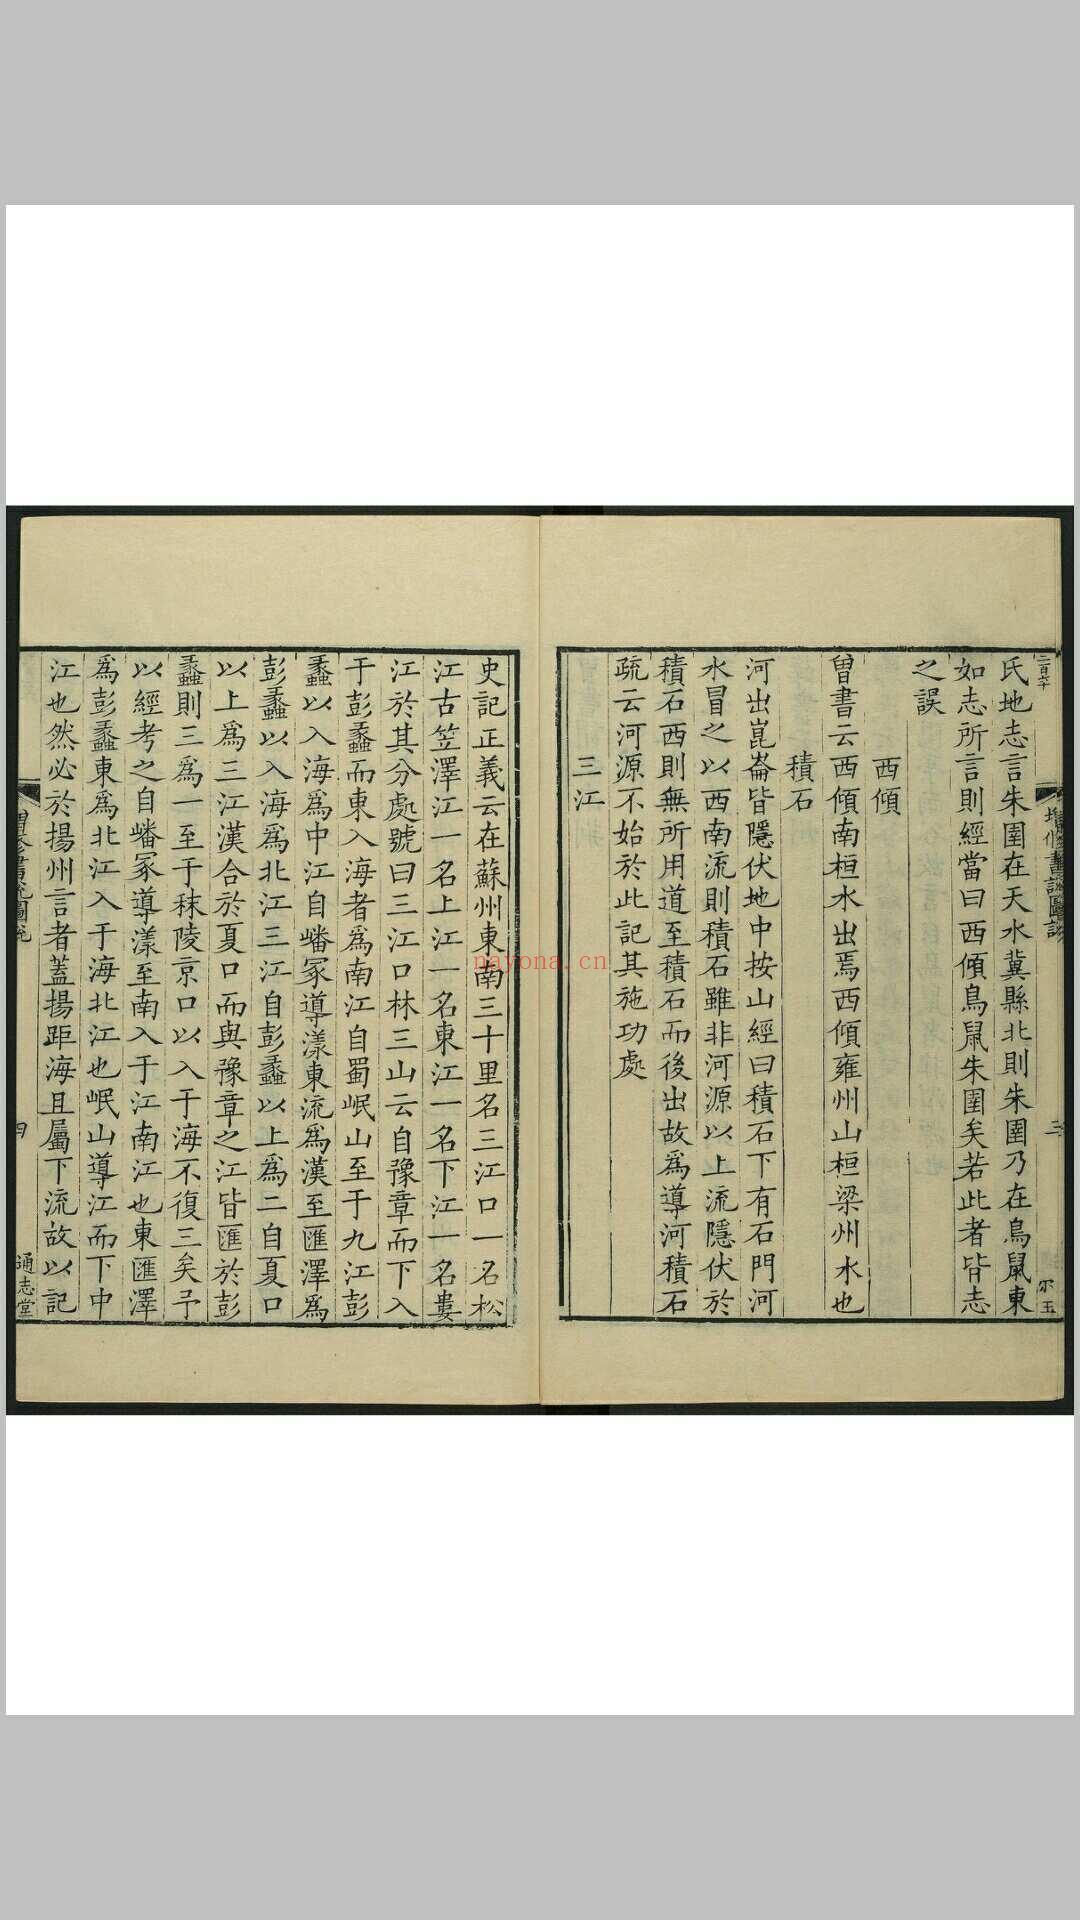 氏地志言朱圉在天水冀縣北則朱圉乃在鳥鼠東
如志所言則經當曰西傾鳥鼠朱圉矣若此者皆志
之誤
西傾
曾書云西傾南桓水出焉西傾雍州山桓梁州水也
積石
河出崑崙皆隱伏地中按山經曰積石下有石門河
水冒之以西南流則積石雖非河源以上流隱伏於
積石西則無所用道至積石而後出故為導河積石
疏云河源不始於此記其施功處
三江
史記正義云在蘇州東南三十里名三江口一名松
江古笠澤江一名上江一名東江一名下江一名婁
江於其分處號曰三江口林三山云自豫章而下入
于彭蠡而東入海者為南江自蜀岷山至于九江彭
蠡以入海為中江自嶓冢導漾東流為漢至匯澤為
彭蠡以入海為北江三江自彭蠡以上為二自夏口
以上為三江漢合於夏口而與豫章之江皆匯於彭
蠡則三為一至于秣陵京口以入于海不復三矣予
以經考之自嶓冢導漾至南入于江南江也東匯澤
為彭蠡東為北江入于海北江也岷山導江而下中
江也然必於揚州言者蓋揚距海且屬下流故以記
通志堂
nayona.cn